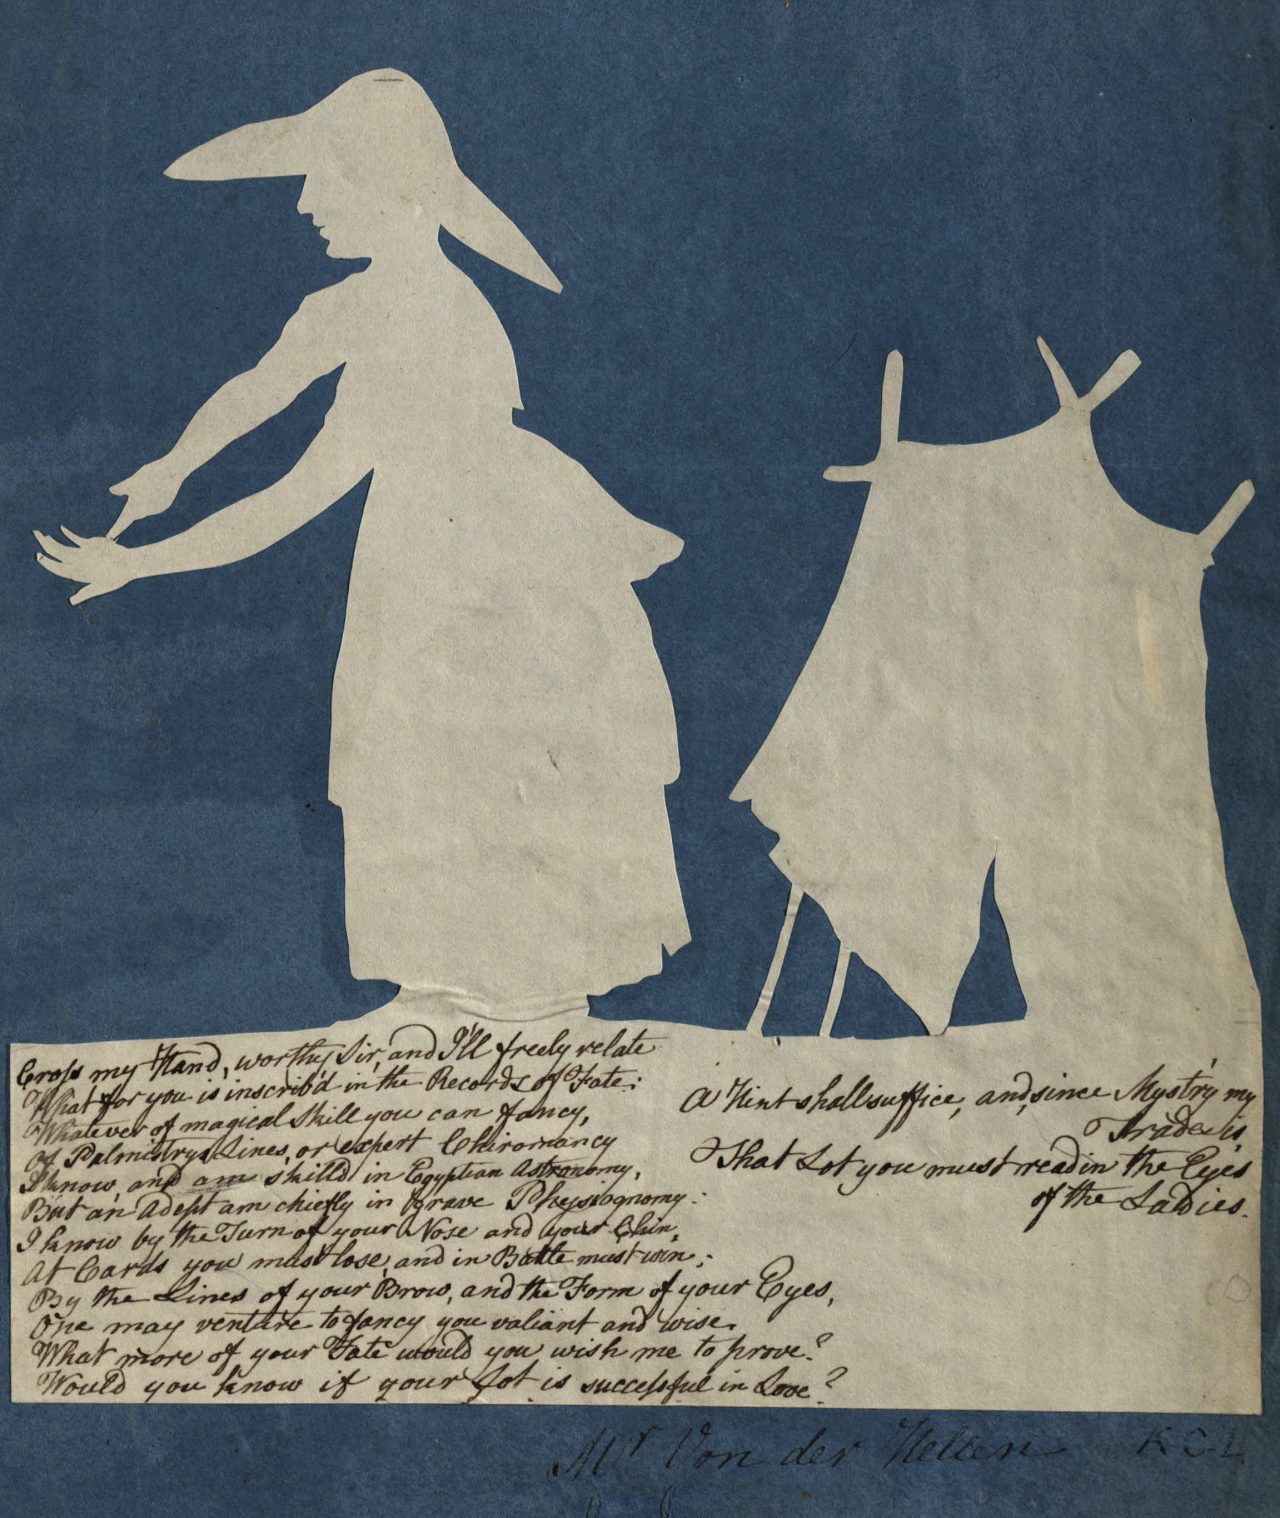 Cross my Hand, worthy Sir, and I'll freely relate
What for you is inscrib'd in the Records of Fate:
Whatever of magical skill you can fancy,
Of Palmistrys Lines, or expert Chiromancy
I know, and am skill'd in Egyptian Astronomy,
But an Adept am chiefly in grave Physiognomy:
I know by the Turn of your Nose and your Chin,
At Cards you must lose, and in Battle must win;
By the Lines of your Brow, and the Form of your Eyes,
One may venture to fancy you valiant and wise.
What more of your Fate would you wish me to prove?
Would you know if your Lot is successful in Love?
A Hint shall suffice, and, since Myst'ry my
Trade is
That Lot you must read in the Eyes
of the Ladies.
Mr Von der Hellen KCL